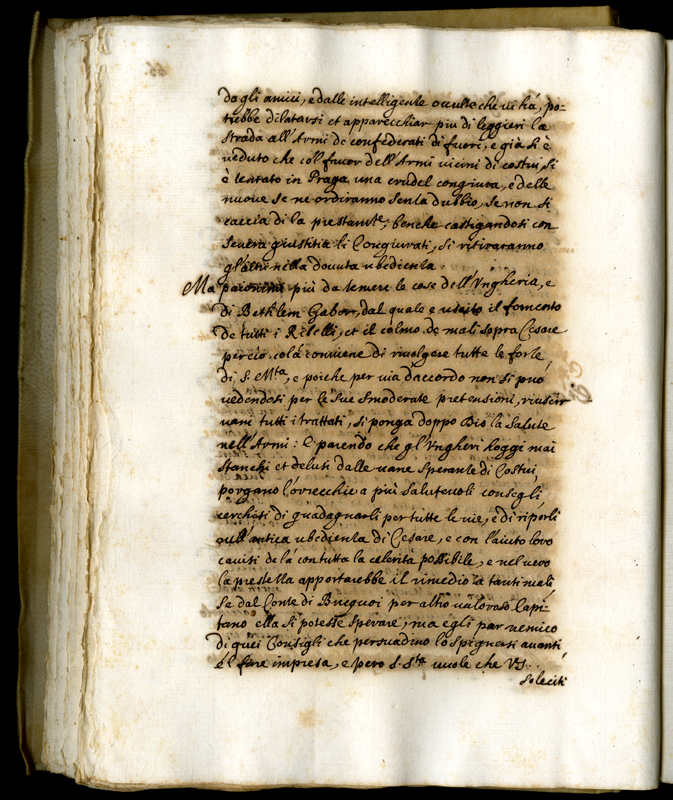 dagli amici, e dalle intelligenze occulte che vi há, po=
trebbe dilatarsi et apparecchiar piu di leggieri la
strada all'Armi de confederati di fuori, e già si è
veduto che coll favor dell'Armi vicini di costui, si
è tentato in Praga una crudel congiura, e delle
nuove se ne ordiranno senza dubbio, se non si
caccia di la prestamte, benche castigandosi con
severa giustitia li Congiurati, si ritiraranno
gl'altri nella dovuta ubedienza.
Ma più da temere le cose dell'Vngheria, e
di Bethlem Gabor, dal quale e uscito il fomento
de tutti i Ribelli, et il colmo de mali sopra Cesare
perciò colà conviene di rivolgere tutte le forze
di S. Mta, e poiche per via d'accordo non si può
vedendosi per le sue smoderate pretensioni, riuscir
vani tutti i trattati, si ponga doppo Dio la salute
nell'Armi: E parendo che gl'Vngheri hoggi mai
stanchi et delusi dalle vane speranze di Costui
porgano l'orecchie a più salutevoli consegli
cerchisi di guadagnarli per tutte le vie, e di riporli
sull'antica ubedienza di Cesare, e con l'aiuto loro
cavisi de là con tutta la celerità possibile, e nel vero
la prestezza apportarebbe il rimedio à tanti mali
se dal Conte di Bucquoi per altro valoroso Capi=
tano ella si potesse sperare, ma egli par nemico
di quei Consigli che persuadino lo spignersi avanti
è l fare impresa, e però S. Sta vuole che VS.
soleciti